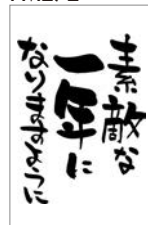 素敵な
一年に
なりますように